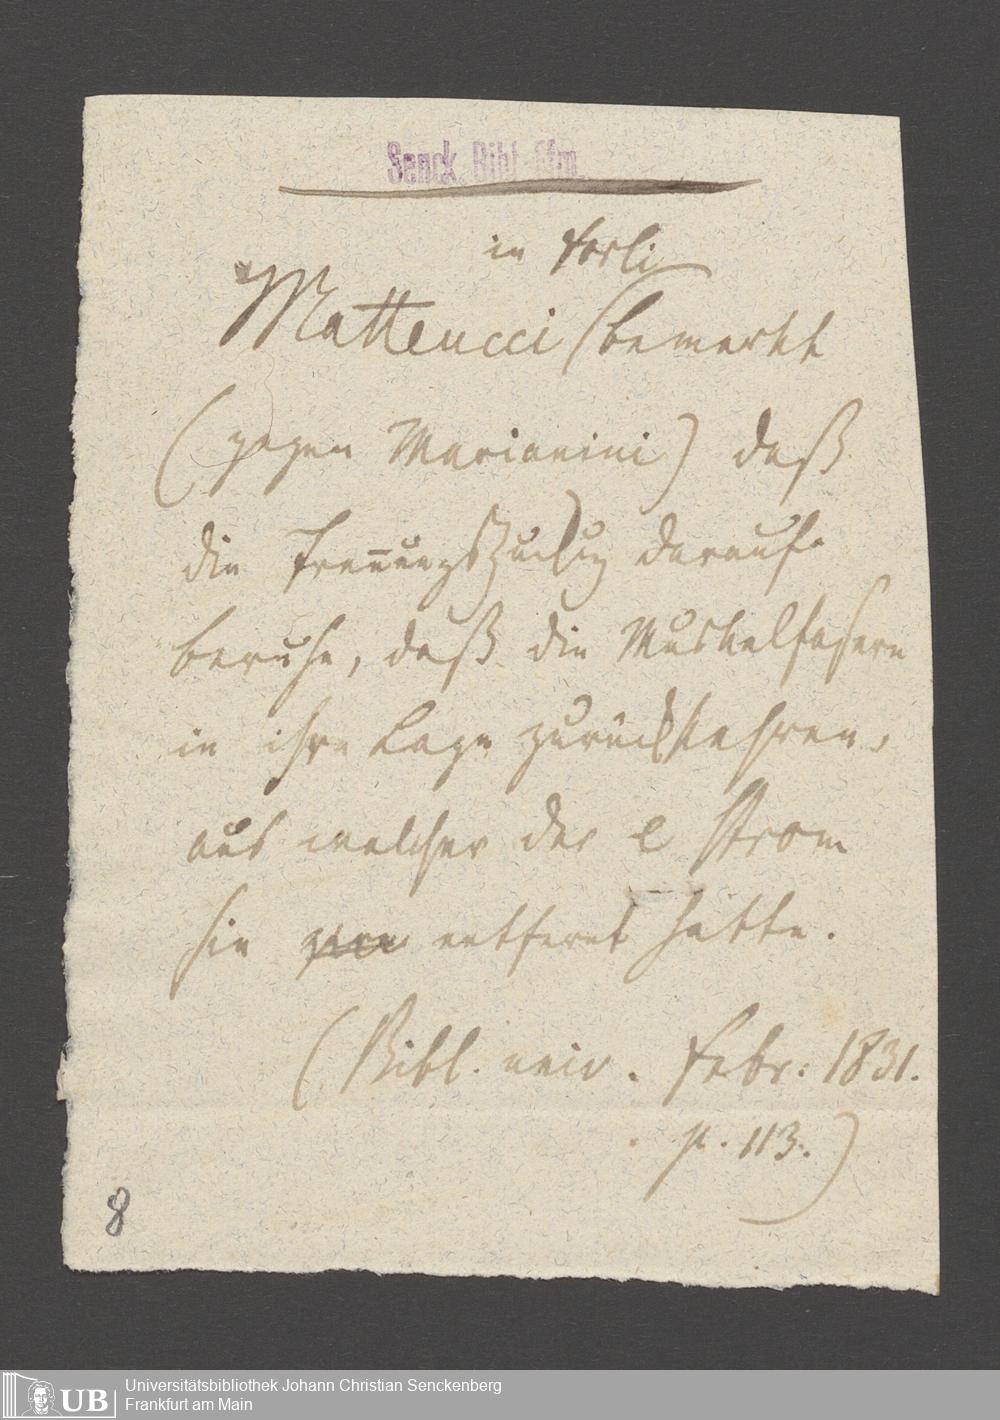 Senck. Bibl. Ffm.
in Forli
Matteucci bemerkt
(gegen Marianini) daß
die Trennungszuckg darauf
beruhe, daß die Muskelfasern
in ihre Lage zurückkehren,
aus welcher der e Strom
sie entfernt hatte.
(Bibl. univ. Febr: 1831.
p. 113.)
8
UB
Universitätsbibliothek Johann Christian Senckenberg
Frankfurt am Main